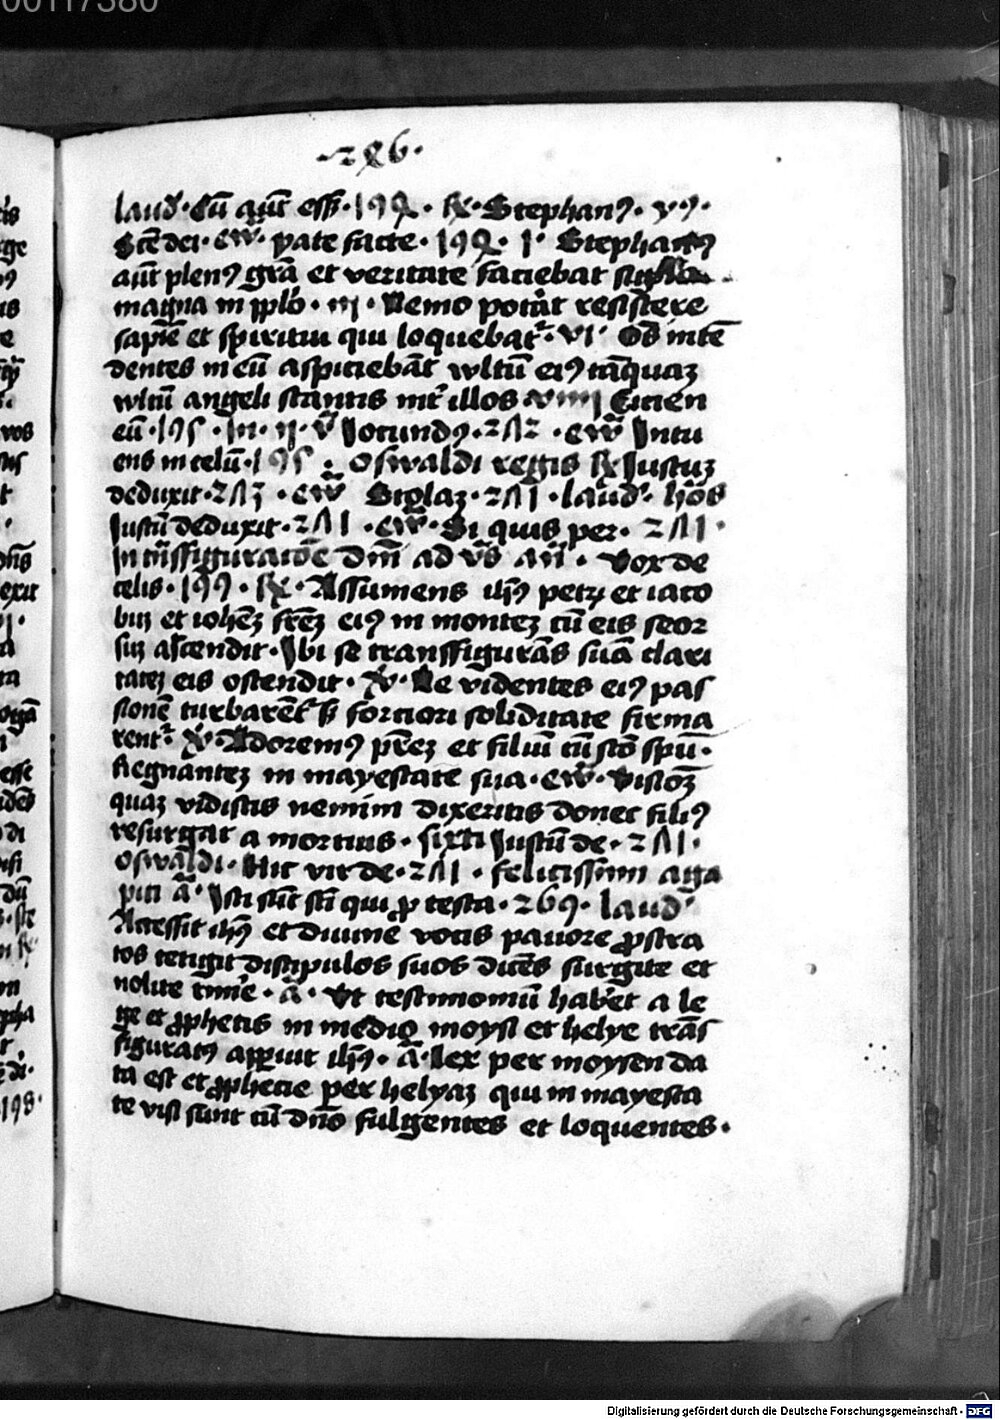 00117380
·286·
laud͛· Cū aut͛ ess̄·198· R̷· Stephanꝰ· yꝰ·
Sc̄e dei· ew̄· pate facte· 198· 1· Stephanꝰ
aut͛ plenꝰ gr̄a et veritate faciebat sig
magna in pplo̅· iij· Nemo potu̅t resistere
sapie̅ et spiritui qui loquebat͛· vi· Oē̅s inte̅
dentes in eu̅ aspiciebāt vltu̅ eiꝰ ta̅quaʒ
vltu̅ angeli stantis int͛ illos viiij Eicien
eu̅·195· In· ij· v̄ Iocundꝰ·272· ew̄ Intu
ens in celu̅·195· Oswaldi regis R̷ Iustuʒ
deduxit·273· ew̄ Stolaʒ·271· laud͛· hōs
Iustu̅ deduxit·271· ew̄· Si quis per· 271·
In tn̅sfiguratōe dn̅i ad v̄s an̄· Vox de
celis·199· R̷· Assumens ih̅s petꝝ et iaco
buʒ et ioh̅eʒ fr̅eʒ eiꝰ in monteʒ cu̅ eis seor
suʒ ascendit· Ibi se transfigurās suā clari
tateʒ eis ostendit· v̄· Ne videntes eiꝰ pas
sionē turbarēt͛ sʒ fortiori soliditate firma
rent͛ v̄· Adoremꝰ pr̅eʒ et filiu̅ cu̅ sc̄o spu̅·
Regnanteʒ in mayestate sua· ew̄· Visioʒ̅
quaʒ vidistis nemini dixeritis donec filiꝰ
resurgat a mortuis· sixti Iustu̅ de·271·
Oswaldi· Hic vir de·271· felicissimi aga
piti ā· Isti su̅t sc̅i qui ꝓ testa·269· laud͛
Accessit ih̅s et diuine vocis pauore ꝓstra
tos tetigit discipulos suos dice̅s surgite et
nolite time͛e· ā· Vt testimoniu̅ hab͛et a le
ge et ꝓphetis in medio moysi et helye trās
figuratꝰ apparuit ih̅s· ā· Lex per moysen da
ta est et ꝓphecie per helyaʒ qui in mayesta
te visi sunt cu̅ dn̅o fulgentes et loquentes·
Digitalisierung gefördert durch die Deutsche Forschungsgemeinschaft - DFG